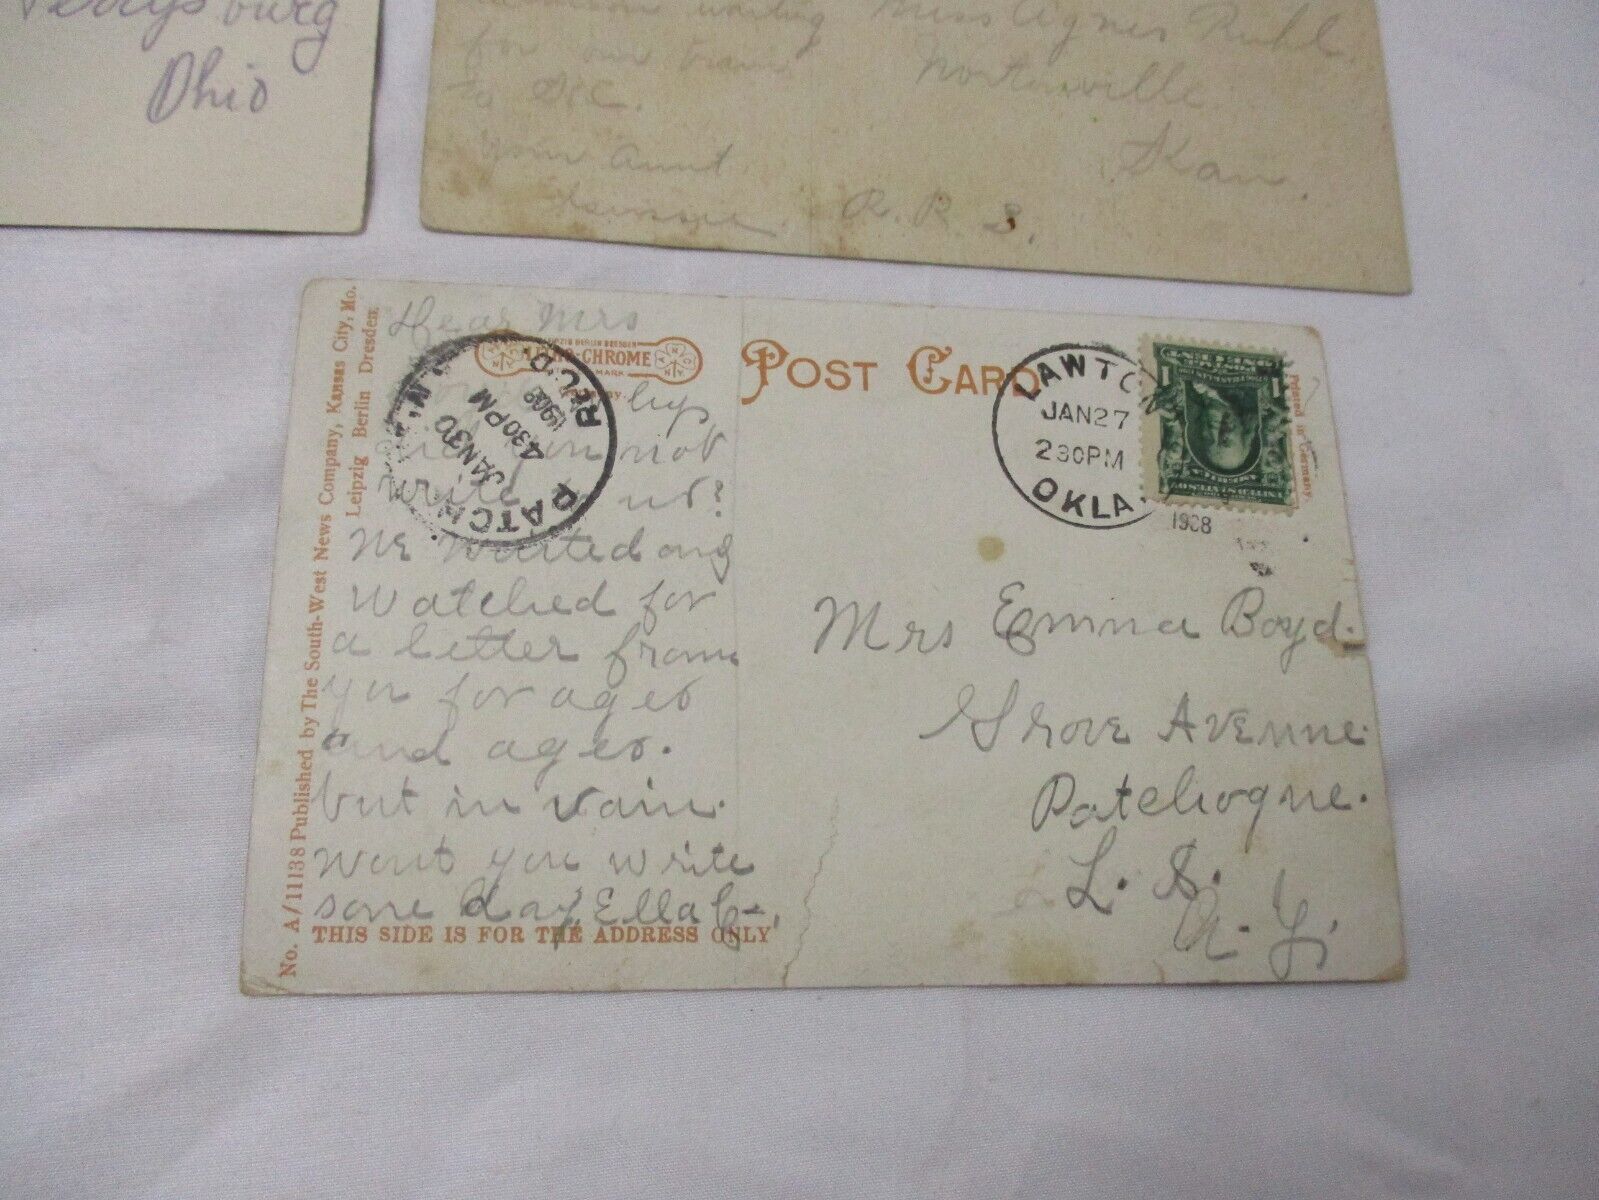 Perrysburg
Ohio
waiting Miss Agnes Ruhl
for our train Nortonville
to K.C.
Kan.
Your Aunt
R. R. S.
No. A/11138 Published by The South-West News Company, Kansas City, Mo.
Leipzig Berlin Dresden.
Dear Mrs
LEIPZIG BERLIN DRESDEN
-CHROME
MARK
PATCHOGUE
JAN 30
4 30 PM
1908
REC'D
N.Y.
POST CARD
LAWTON
JAN 27
2 30 PM
OKLA.
1908
Printed in Germany
you not
write to us?
We waited and
watched for
a letter from
you for ages
and ages.
but in vain.
wont you write
some day, Ella
THIS SIDE IS FOR THE ADDRESS ONLY
Mrs Emma Boyd.
Grove Avenue
Patchogue.
L. I.
N. Y.